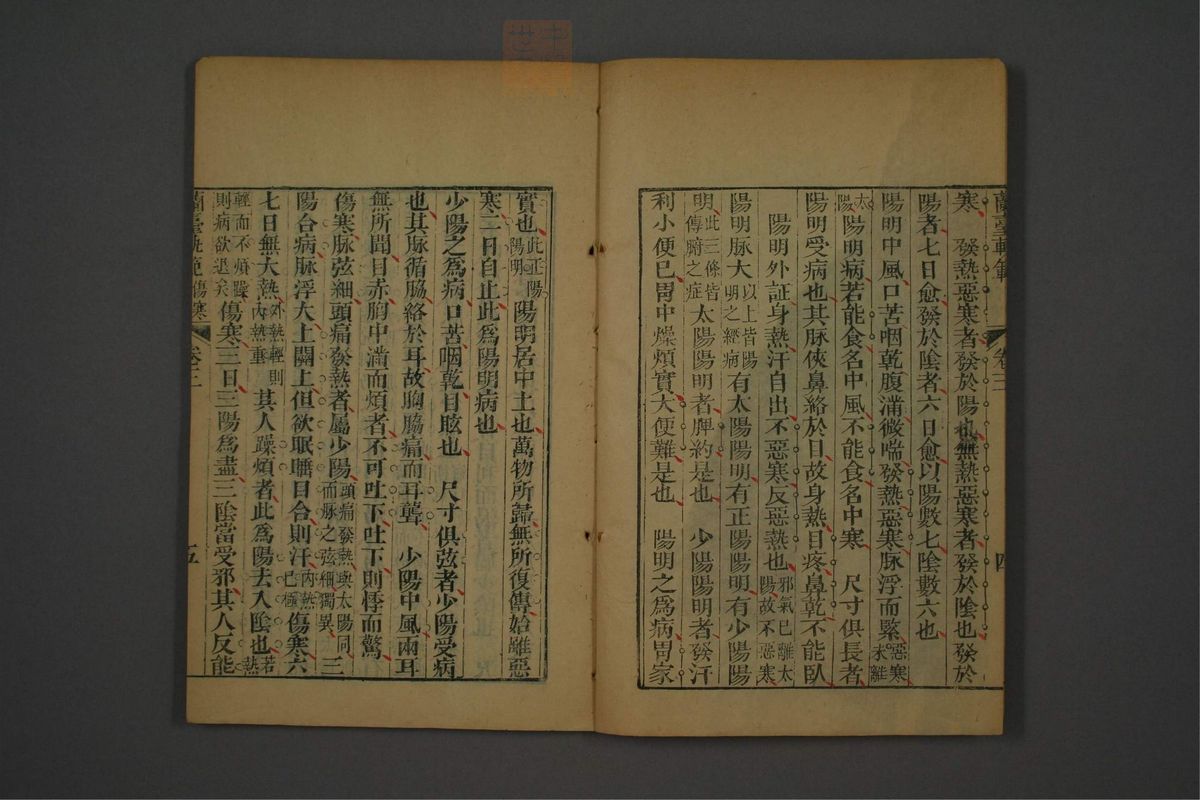 蘭臺軌範 卷三 四
寒　發熱惡寒者發於陽也無熱惡寒者發於陰也發於
陽者七日愈發於陰者六日愈以陽數七陰數六也
陽明中風口苦咽乾腹滿微喘發熱惡寒脈浮而緊惡寒未離
太陽陽明病若能食名中風不能食名中寒　尺寸俱長者
陽明受病也其脈俠鼻絡於目故身熱目疼鼻乾不能臥
陽明外証身熱汗自出不惡寒反惡熱也邪氣已離太陽故不惡寒
陽明脈大以上皆陽明之經病有太陽陽明有正陽陽明有少陽陽
明此三條皆傳腑之症太陽陽明者脾約是也　少陽陽明者發汗
利小便已胃中燥煩實大便難是也　陽明之為病胃家
實也此正陽陽明陽明居中土也萬物所歸無所復傳始雖惡
寒二日自止此為陽明病也
少陽之為病口苦咽乾目眩也　尺寸俱弦者少陽受病
也其脈循脇絡於耳故胸脇痛而耳聾　少陽中風兩耳
無所聞目赤胸中滿而煩者不可吐下吐下則悸而驚
傷寒脈弦細頭痛發熱者屬少陽頭痛發熱與太陽同而脈之弦細獨異　三
陽合病脈浮大上關上但欲眠睡目合則汗內熱已極　傷寒六
七日無大熱外熱輕則內熱重　其人躁煩者此為陽去入陰也若熱
輕而不煩躁則病欲退矣　傷寒三日三陽為盡三陰當受邪其人反能
蘭臺軌範 傷寒 卷三 五